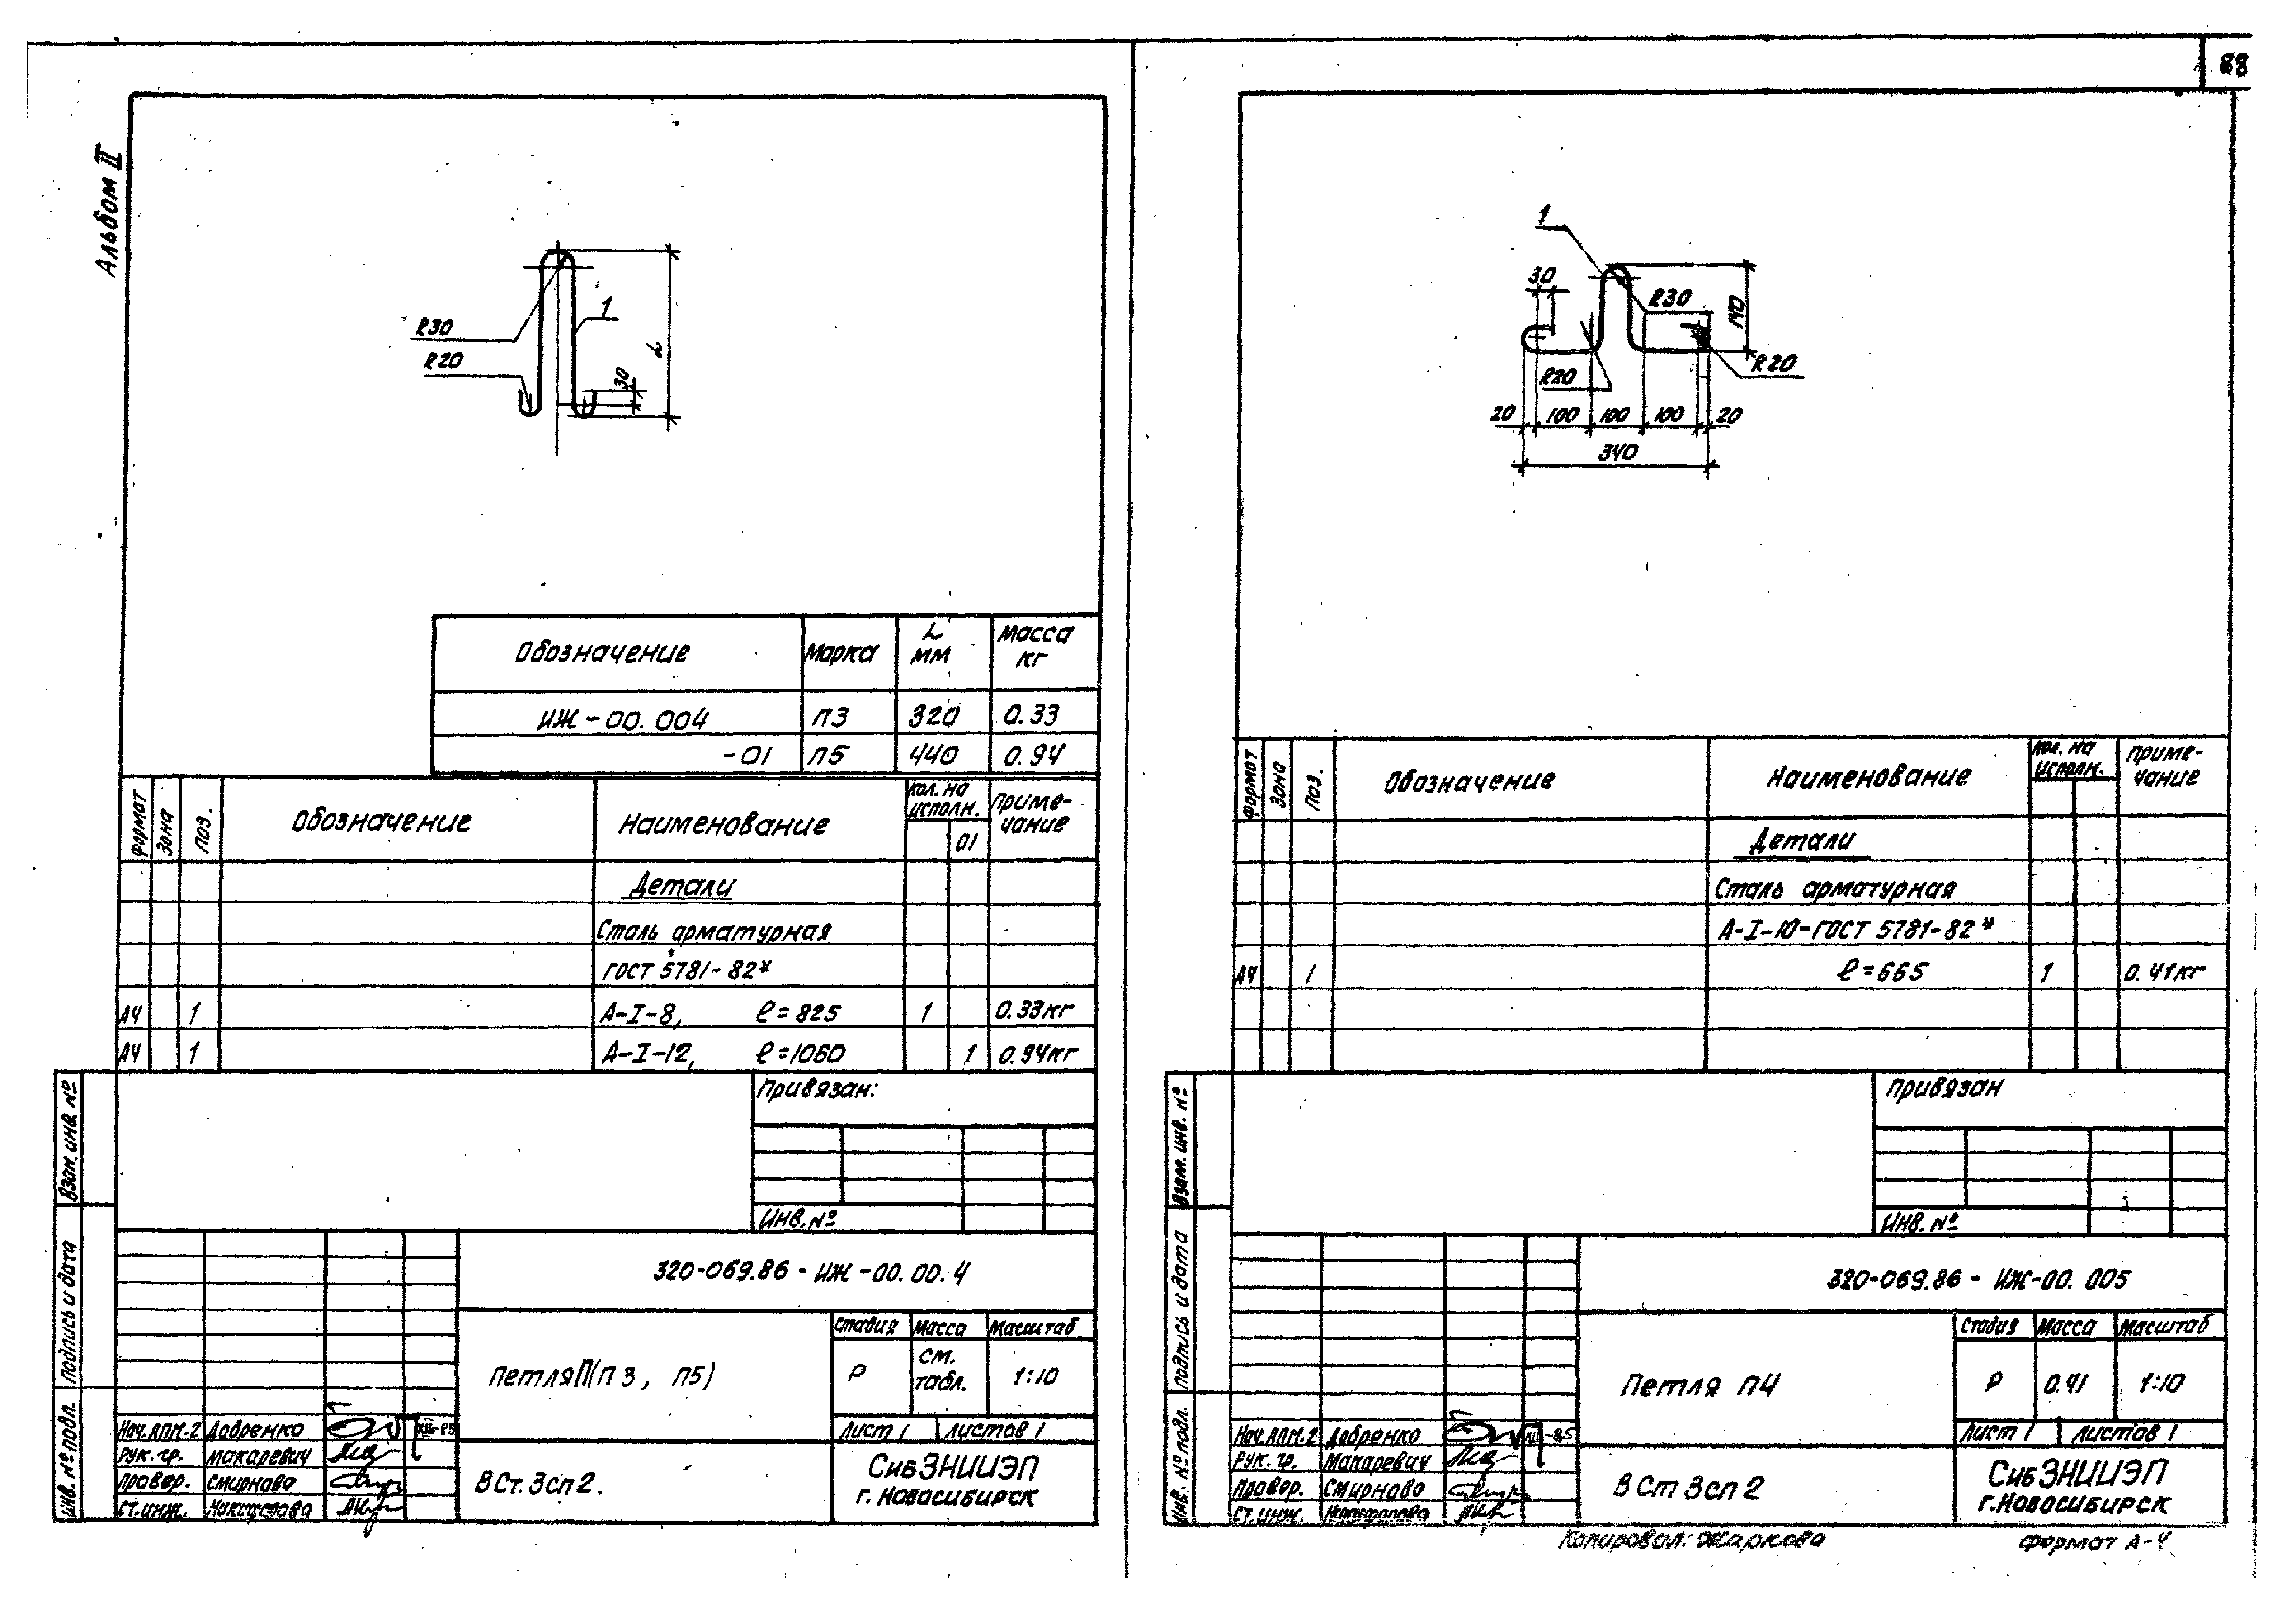 88
Альбом II
R30
R20
1
30
L
Обозначение Марка L мм Масса кг
ИЖ-00.004 П3 320 0.33
-01 П5 440 0.94
Формат Зона Поз. Обозначение Наименование Кол. на исполн. Приме-чание
01
Детали
Сталь арматурная
ГОСТ 5781-82*
А4 1 А-I-8, ℓ=825 1 0.33кг
А4 1 А-I-12, ℓ=1060 1 0.94кг
Привязан:
Инв. №
Взам. инв. №
Подпись и дата
Инв. № подл.
320-069.86-ИЖ-00.00.4
Петля П(П3, П5)
Стадия Масса Масштаб
Р см. табл. 1:10
Лист 1 Листов 1
Нач. АПМ-2 Добренко
Рук. гр. Макаревич
Провер. Смирнова
Ст. инж.
ВСт.3сп2.
СибЗНИИЭП
г. Новосибирск
1
30
R30
140
R20
R20
20 100 100 100 20
340
Формат Зона Поз. Обозначение Наименование Кол. на исполн. Приме-чание
Детали
Сталь арматурная
А-I-10-ГОСТ 5781-82*
А4 1 ℓ=665 1 0.41кг
Привязан
Инв. №
Взам. инв. №
Подпись и дата
Инв. № подл.
320-069.86-ИЖ-00.005
Петля П4
Стадия Масса Масштаб
Р 0.41 1:10
Лист 1 Листов 1
Нач. АПМ-2 Добренко
Рук. гр. Макаревич
Провер. Смирнова
Ст. инж.
ВСт3сп2
СибЗНИИЭП
г. Новосибирск
Копировал: Жаркова Формат А-4